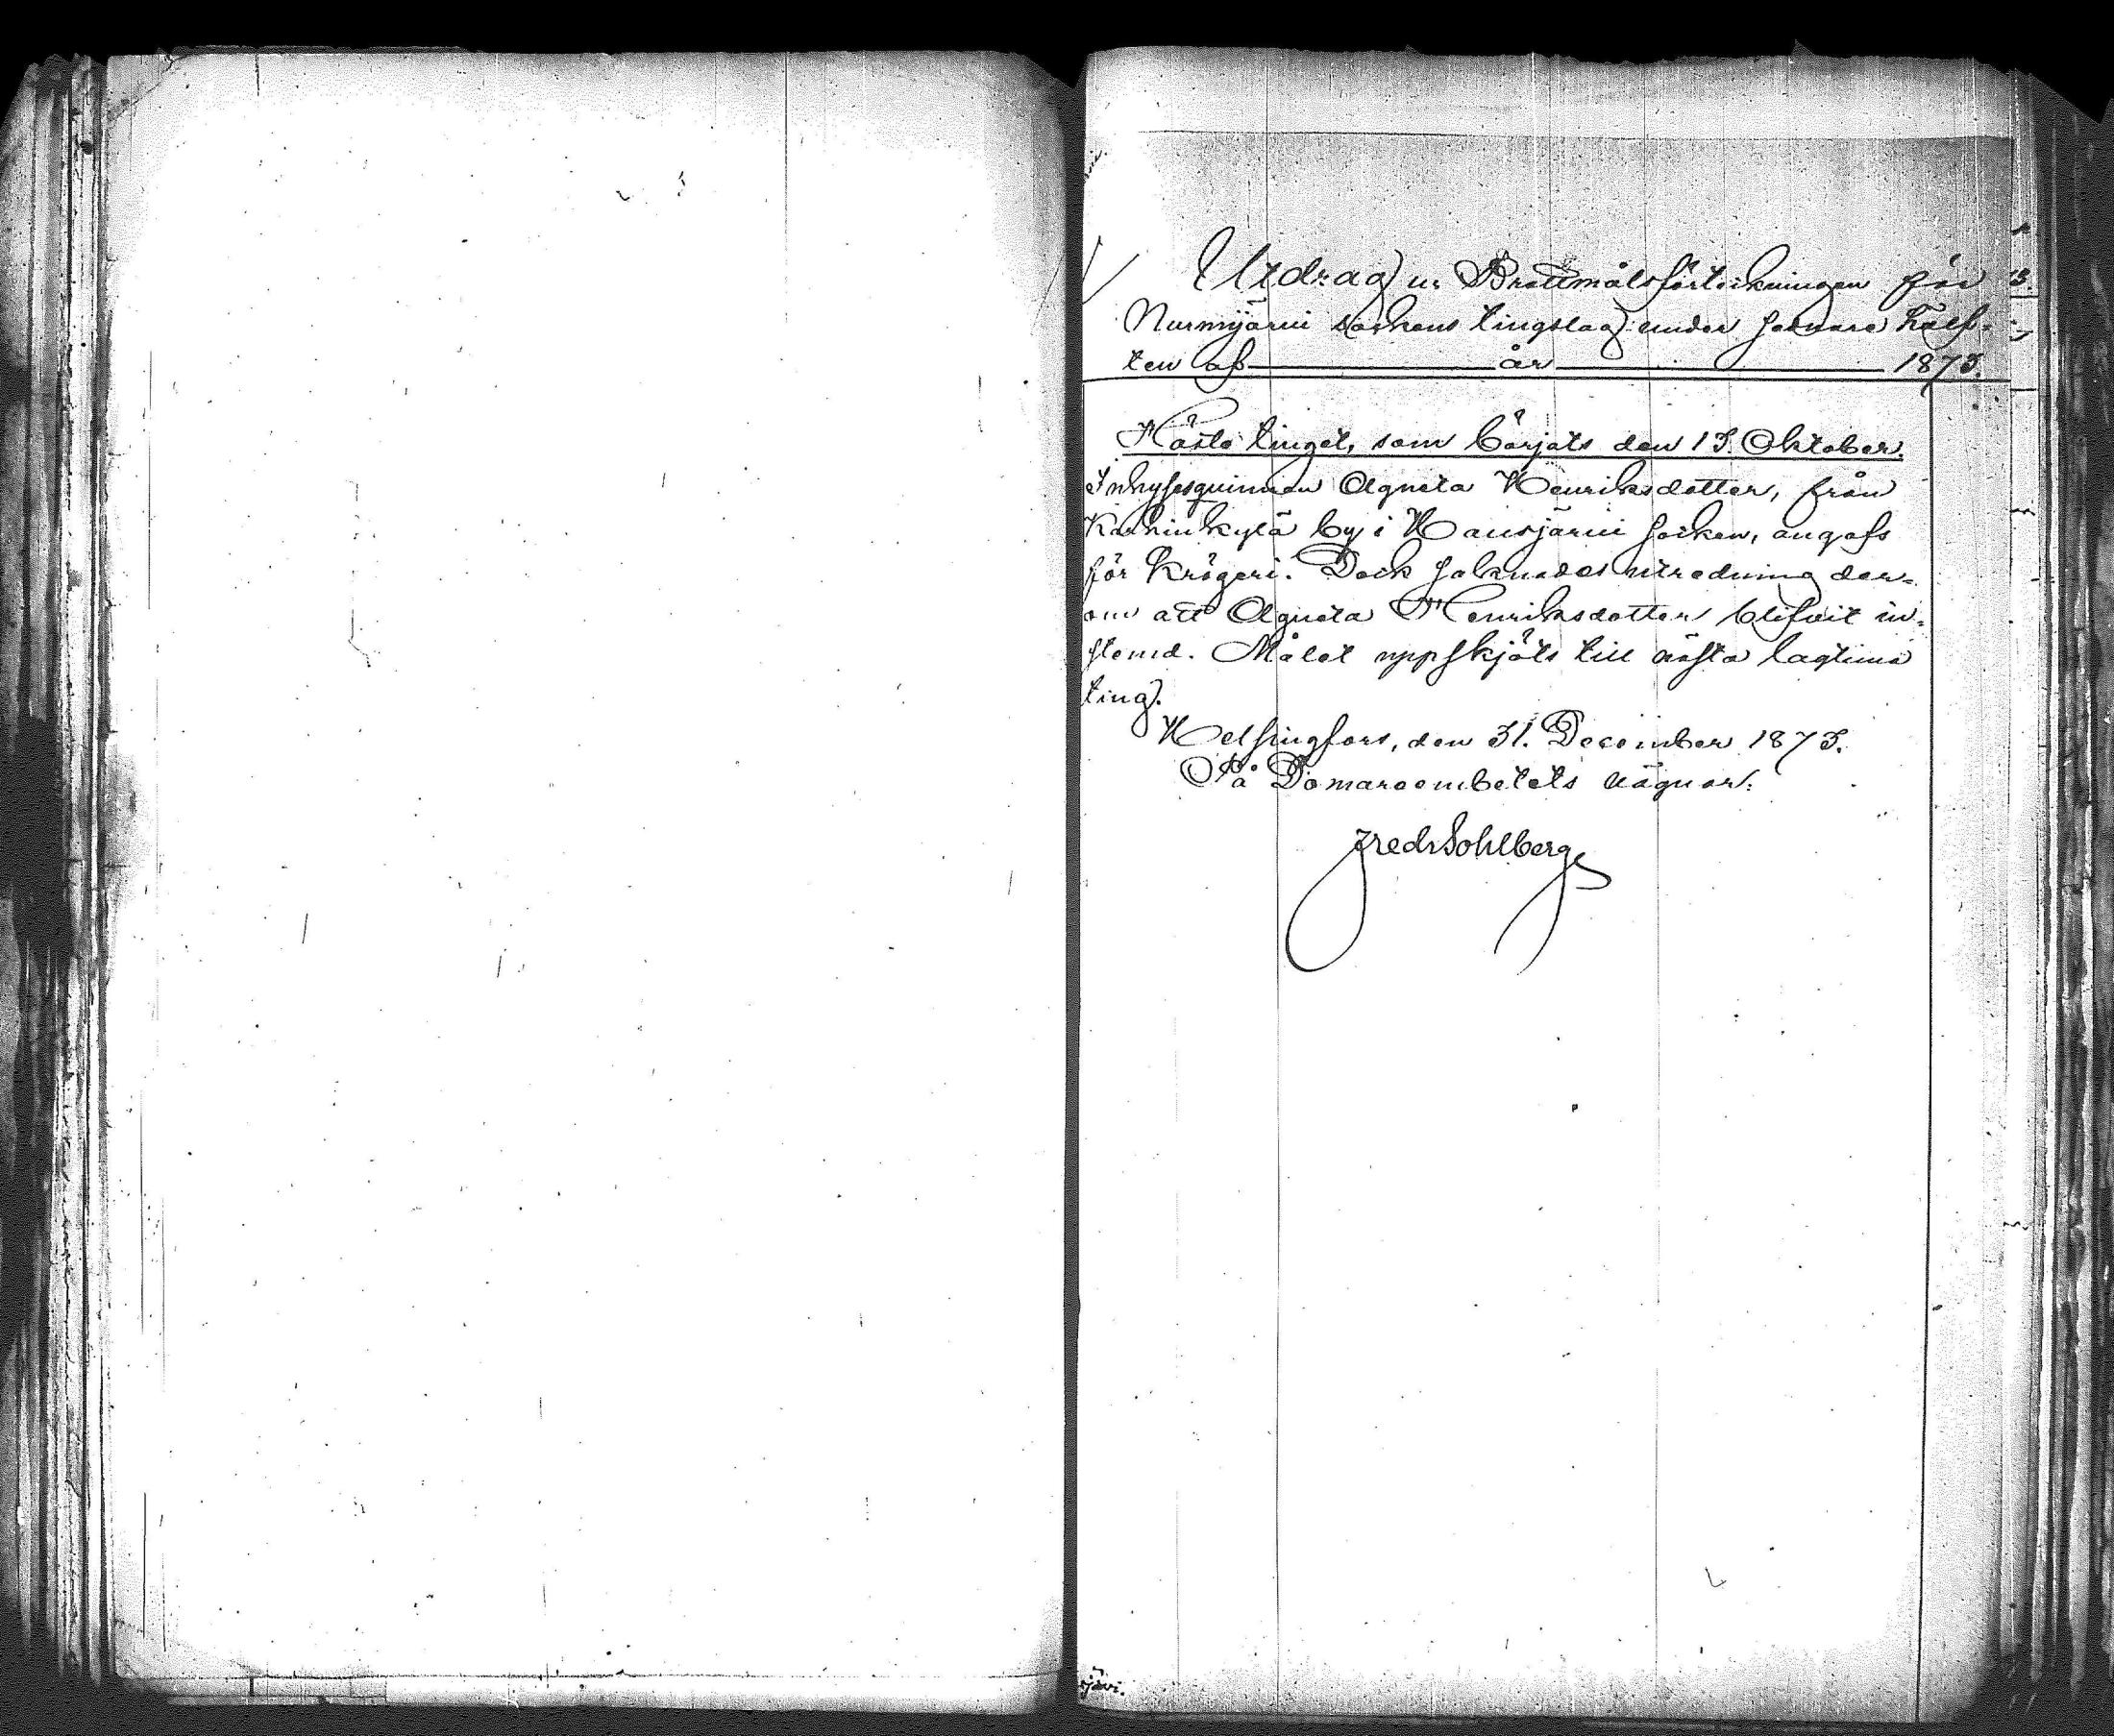 Utdrag ur Brottmålsförteckningen för
Nurmijärvi sockens tingslag under sednare hälf-
ten af år 1875.
Hösttinget, som börjats den 15. Oktober.
Inhysesqvinnan Agneta Henriksdotter, från
by i Hausjärvi socken, angafs
för krögeri. Dock saknades utredning der-
om att Agneta Henriksdotter blifvit in-
stemd. Målet uppskjöts till nästa lagtima
ting.
Helsingfors, den 31. December 1875.
På Domareembetets vägnar:
Fredr Sohlberg